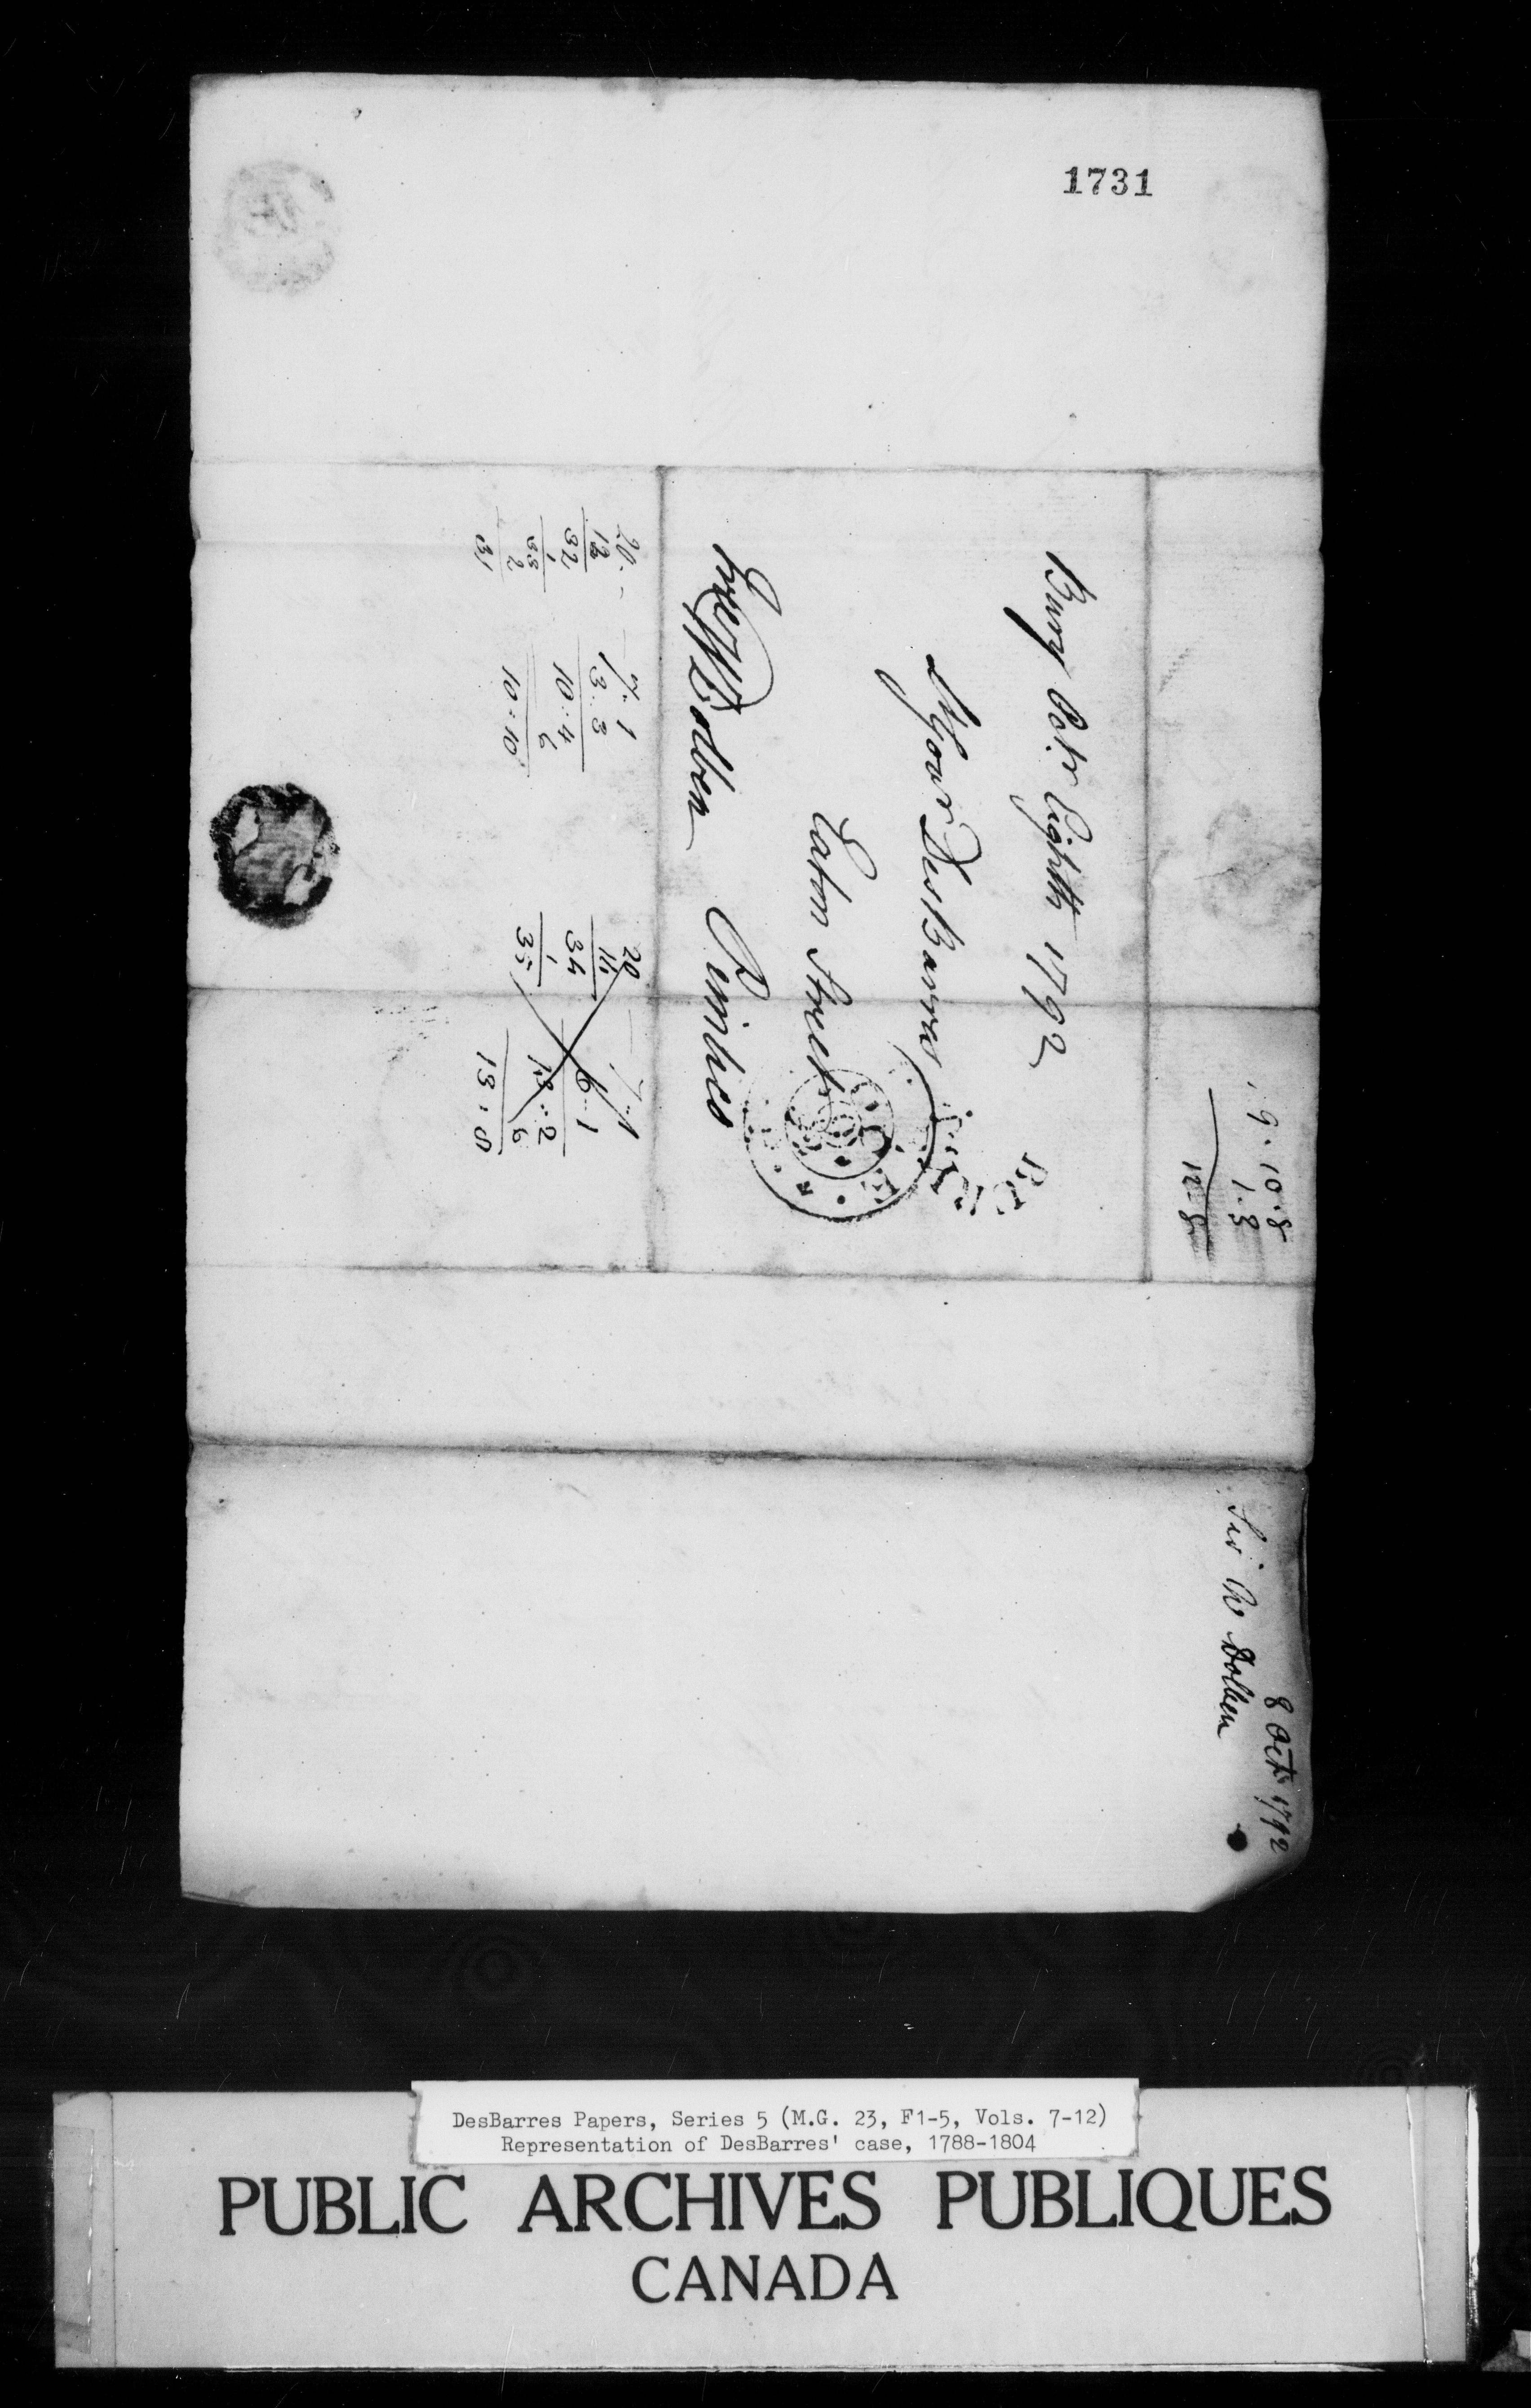 1731
Bury Octr Eighth 1792
Major DesBarres
Eaton Street
Pimlico
Free W Dolben
BURY
9 . 10 . 8
1 . 8
12 . 8
20
12
32
1
33
2
31
7 . 1
13 : 3
10 : 4
6
10 : 10
20
34
1
35
7 . 1
6 . 1
13 : 2
6
13 : 8
8 Octr 1792
Sir W Dolben
DesBarres Papers, Series 5 (M.G. 23, F1-5, Vols. 7-12)
Representation of DesBarres' case, 1788-1804
PUBLIC ARCHIVES PUBLIQUES
CANADA